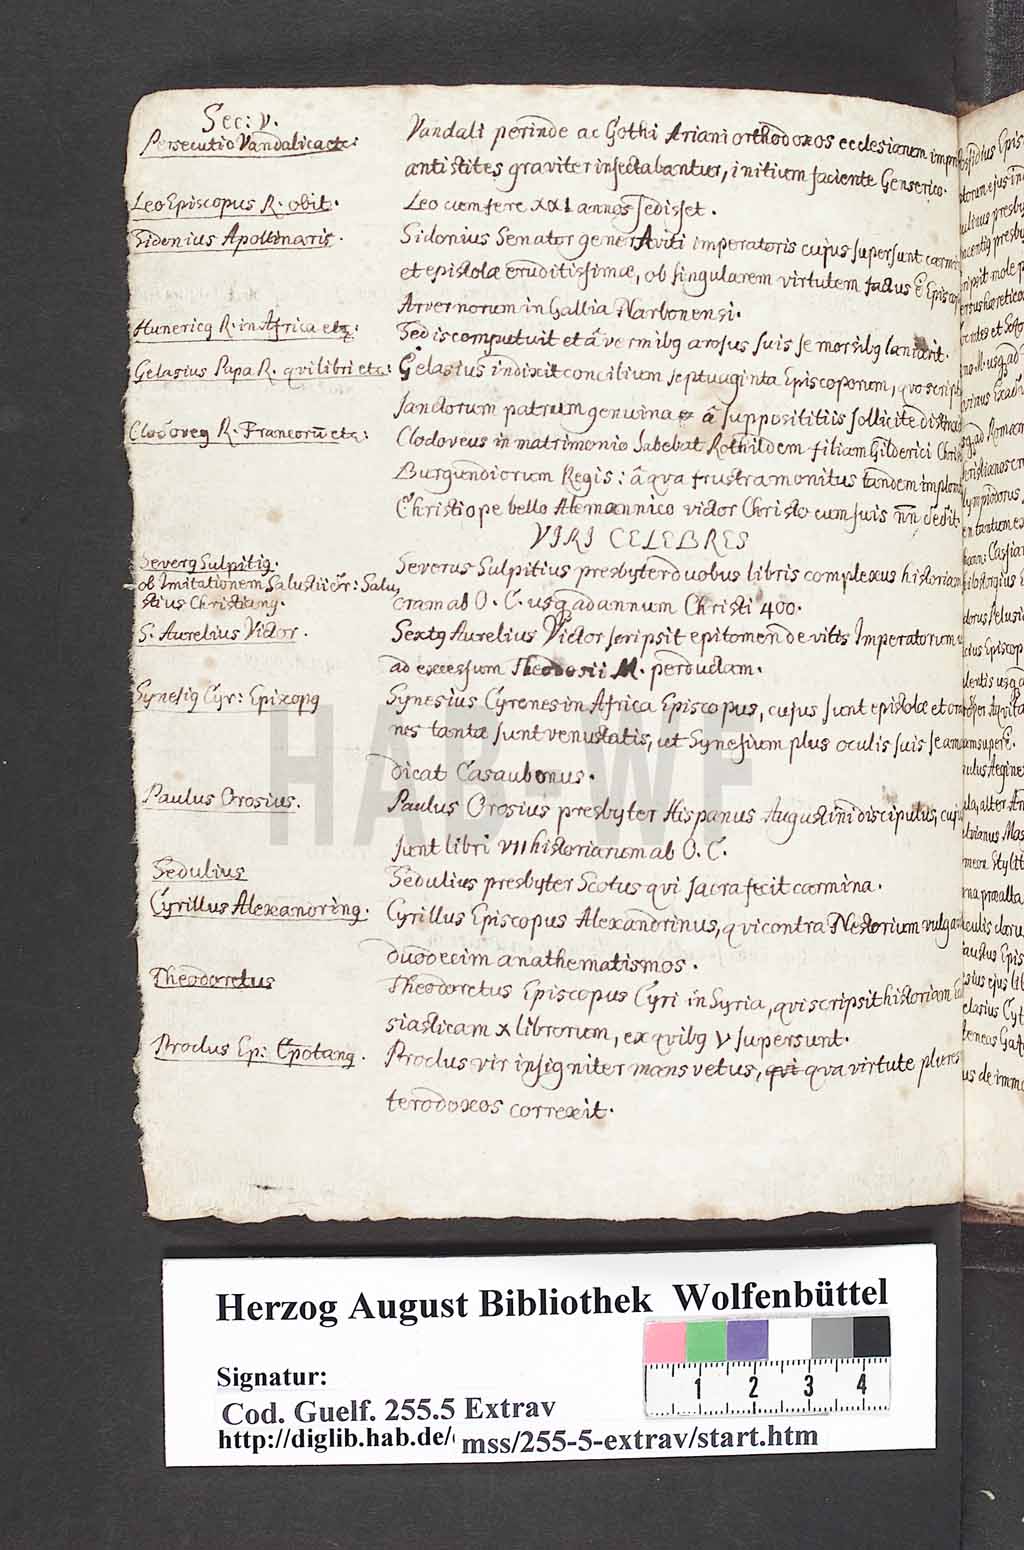 Sec: V.
Persecutio Vandalica etc: Vandali perinde ac Gothi Ariani orthodoxos ecclesiarum
antistites graviter insectabantur, initium faciente Genserico.
Leo Episcopus R. obit. Leo cum fere XXI annos sedisset.
Sidonius Apollinaris. Sidonius Senator gener Aviti imperatoris cujus supersunt
et epistolæ eruditissimæ, ob singularem virtutem factus ē
Arvernorum in Gallia Narbonensi.
Hunericq R. in Africa etc: Sed is computuit et â vermibq arosus suis se morsibq laniavit.
Gelasius Papa R. qvi libri etc: Gelasius indixit concilium septuaginta Episcoporum, qvo
sanctorum patrum genuina â supposititiis sollicite
Clodoveq R. Francorū etc: Clodoveus in matrimonio habebat Rothildem filiam Gilderici
Burgundiorum Regis: â qva frustra monitus tandem
Christi ope bello Alemannico victor Christo cum suis
VIRI CELEBRES
Severq Sulpitiq. Severus Sulpitius presbyter duobus libris complexus historiam
ob Imitationem Salustii dr: Salu,
stius Christianq. cram ab O. C. usq ad annum Christi 400.
S. Aurelius Victor. Sextq Aurelius Victor scripsit epitomen de vitis Imperatorum
ad excessum Theodosii M. perductam.
Synesiq Cyr: Epixopq Synesius Cyrenes in Africa Episcopus, cujus sunt epistolæ et
nes tantæ sunt venustatis, ut Synesium plus oculis suis se
dicat Casaubonus.
Paulus Orosius. Paulus Orosius presbyter Hispanus Augustini discipulus,
sunt libri VII historiarum ab O. C.
Sedulius Sedulius presbyter Scotus qvi sacra fecit carmina.
Cyrillus Alexandrinq. Cyrillus Episcopus Alexandrinus, qvi contra Nestorium
duodecim anathematismos.
Theodoretus Theodoretus Episcopus Cyri in Syria, qvi scripsit historiam
siasticam X librorum, ex quibq V supersunt.
Proclus Ep: Cpotanq. Proclus vir insigniter mansvetus, qvi qva virtute plures
terodoxos correxit.
Herzog August Bibliothek Wolfenbüttel
Signatur:
Cod. Guelf. 255.5 Extrav
http://diglib.hab.de/ mss/255-5-extrav/start.htm
1 2 3 4
HAB-WF